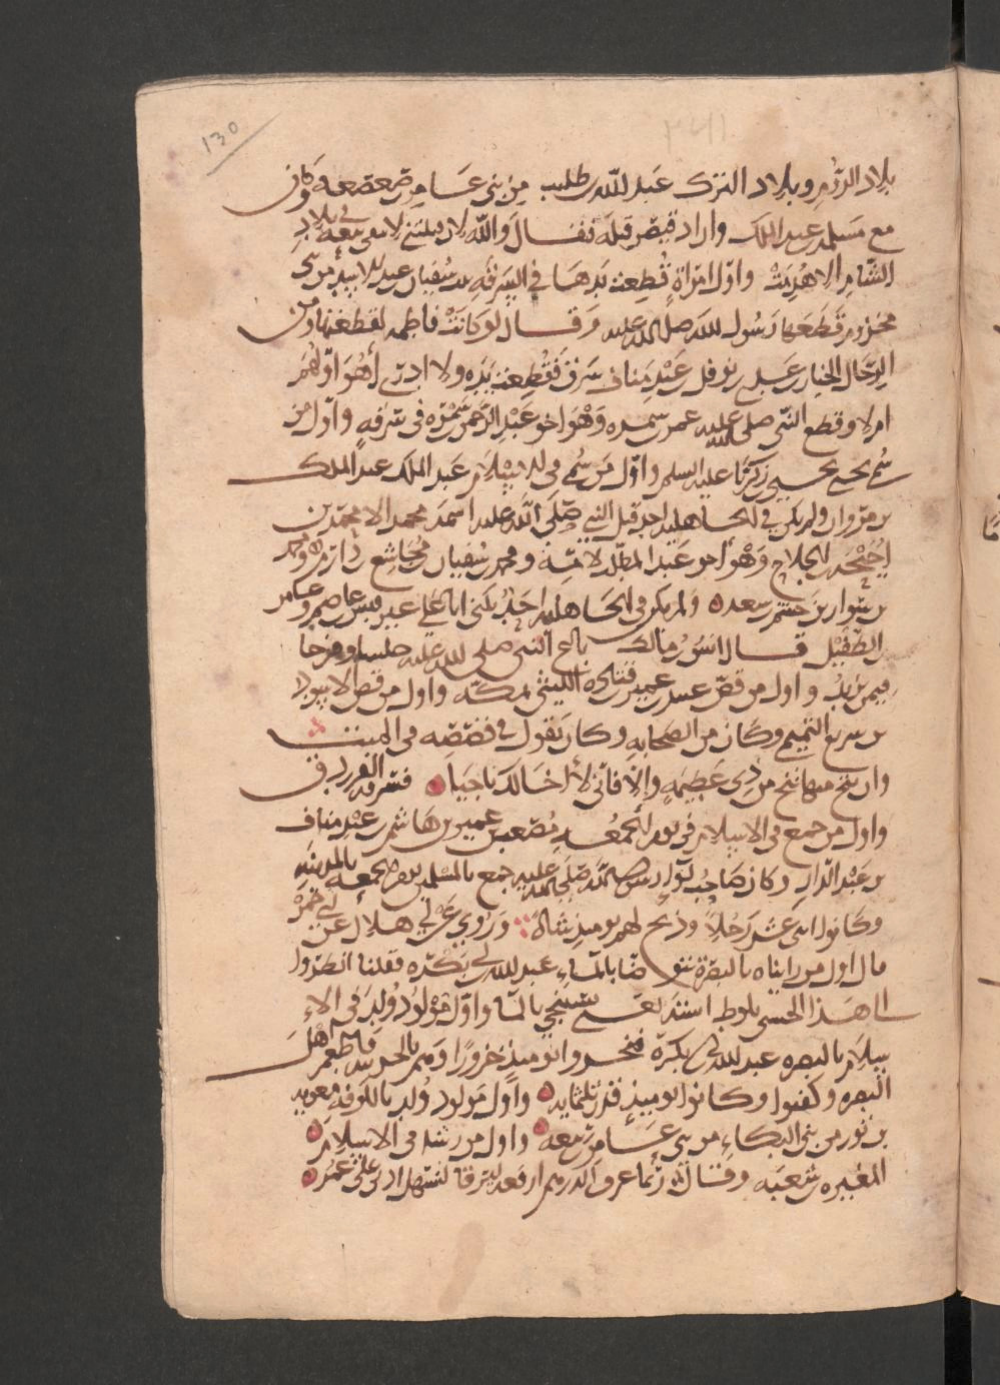 130
بلاد الروم وبلاد الترك عبد الله بن طليب من بنى عامر بن صعصعه وكان
مع مسلمه بن عبد الملك واراد قيصر قتله فقال والله لان قتلتنى لا تبقى بيعه فى بلاد
الشام الا هدمت واول امراة قطعت يدها فى السرقه بنت سفيان بن عبد الاسد من بنى
مخزوم قطعها رسول الله صلى الله عليه وقال لو كانت فاطمه لقطعتها ومن
الرجال الخيار بن عدى بن نوفل بن عبد مناف سرق فقطعت يده ولا ادرى أهو اولهم
ام لا وقطع النبى صلى الله عليه عمر بن سمره وهو اخو عبد الرحمن بن سمره فى سرقه واول من
سُمى يحيى يحيى بن زكريا عليه السلم واول من سُمى فى الاسلام عبد الملك عبد الملك
بن مروان ولم يكن فى الجاهليه احد قبل النبى صلى الله عليه اسمه محمد الا محمد بن
اُحيحه بن الجلاح وهو اخو عبد المطلب لامه ومحمد بن سفيان بن مجاشع بن دارم ومحمد
بن سعده ولم يكن فى الجاهليه احد يكنى ابا على غير قيس بن عاصم وعامر
بن الطفيل قال انس بن مالك بايع النبى صلى الله عليه
واول من قص عبيد بن عمير بن قتاده الليثى بمكه واول من قص الاسود
بن سريع التميمى وكان من الصحابه وكان يقول فى قصصه فى الميت
وان تنج منها تنج من ذى عظيمه والا فانى لا أخالك ناجيا فسرقه الفرزدق
واول من جمع فى الاسلام فى يوم الجمعه مصعب بن عمير بن هاشم بن عبد مناف
بن عبد الدار وكان صاحب لواء رسول الله صلى الله عليه جمع بالمسلمين يوم الجمعه بالمدينه
وكانوا اثنى عشر رجلا وذبح لهم يوميذ شاة وروى عن ابى هلال عن ابى حمزه
قال اول من رايناه بالبصرة يتوضا بالماء عبد الله بن ابى بكره فقلنا انظروا
الى هذا الحبشى يلوط استه يعنى يستنجى بالما واول مولود وُلد فى الا
سلام بالبصره عبد الله بن ابى بكرة فنحروا يوميذ جزورا فاطعم اهل
البصره وكفتهم وكانوا يوميذ قدر ثلثمايه واول مولود وُلد بالكوفه معويه
بن ثور من بنى البكاء من بنى عامر بن ربيعه واول من رشا فى الاسلام
المغيره بن شعبه وقال ربما عرف الدرهم ادفعه ليرفا ليسهل اذنى على عمر